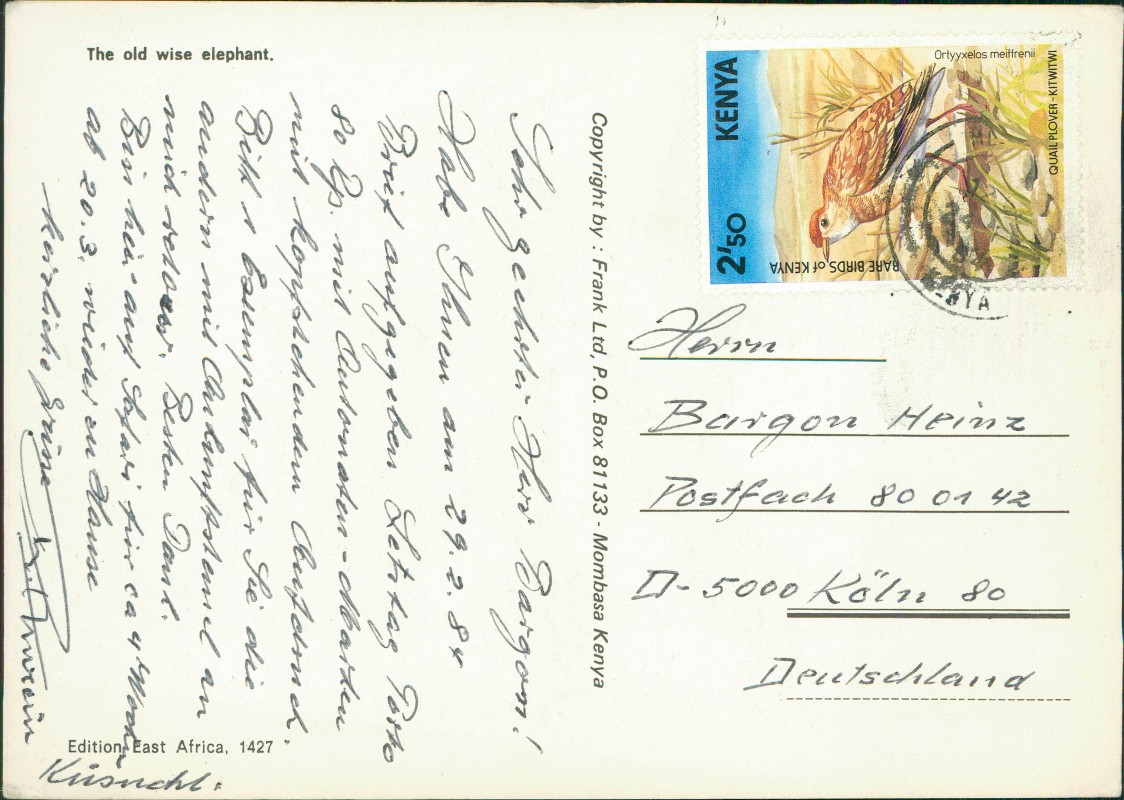 The old wise elephant.
Sehr geehrter Herr Bargon!
Habe Ihnen am 29.2.84
Brief aufgegeben Letztag Porto
80 Rp. mit Automaten-Marken
mit kopfstehendem Aufdruck.
Bitte 1 Exemplar für Sie die
andern mit Ankunftstempel an
mich retour. Besten Dank.
Bin hier auf Safari für ca 4 Wochen
ab 20.3. wieder zu Hause
herzliche Grüsse
Küsnacht.
Edition East Africa, 1427
Copyright by : Frank Ltd, P.O. Box 81133 - Mombasa Kenya
KENYA
2'50
Ortyxelos meiffrenii
QUAIL PLOVER-KITWITWI
RARE BIRDS of KENYA
Herrn
Bargon Heinz
Postfach 80 01 42
D-5000 Köln 80
Deutschland